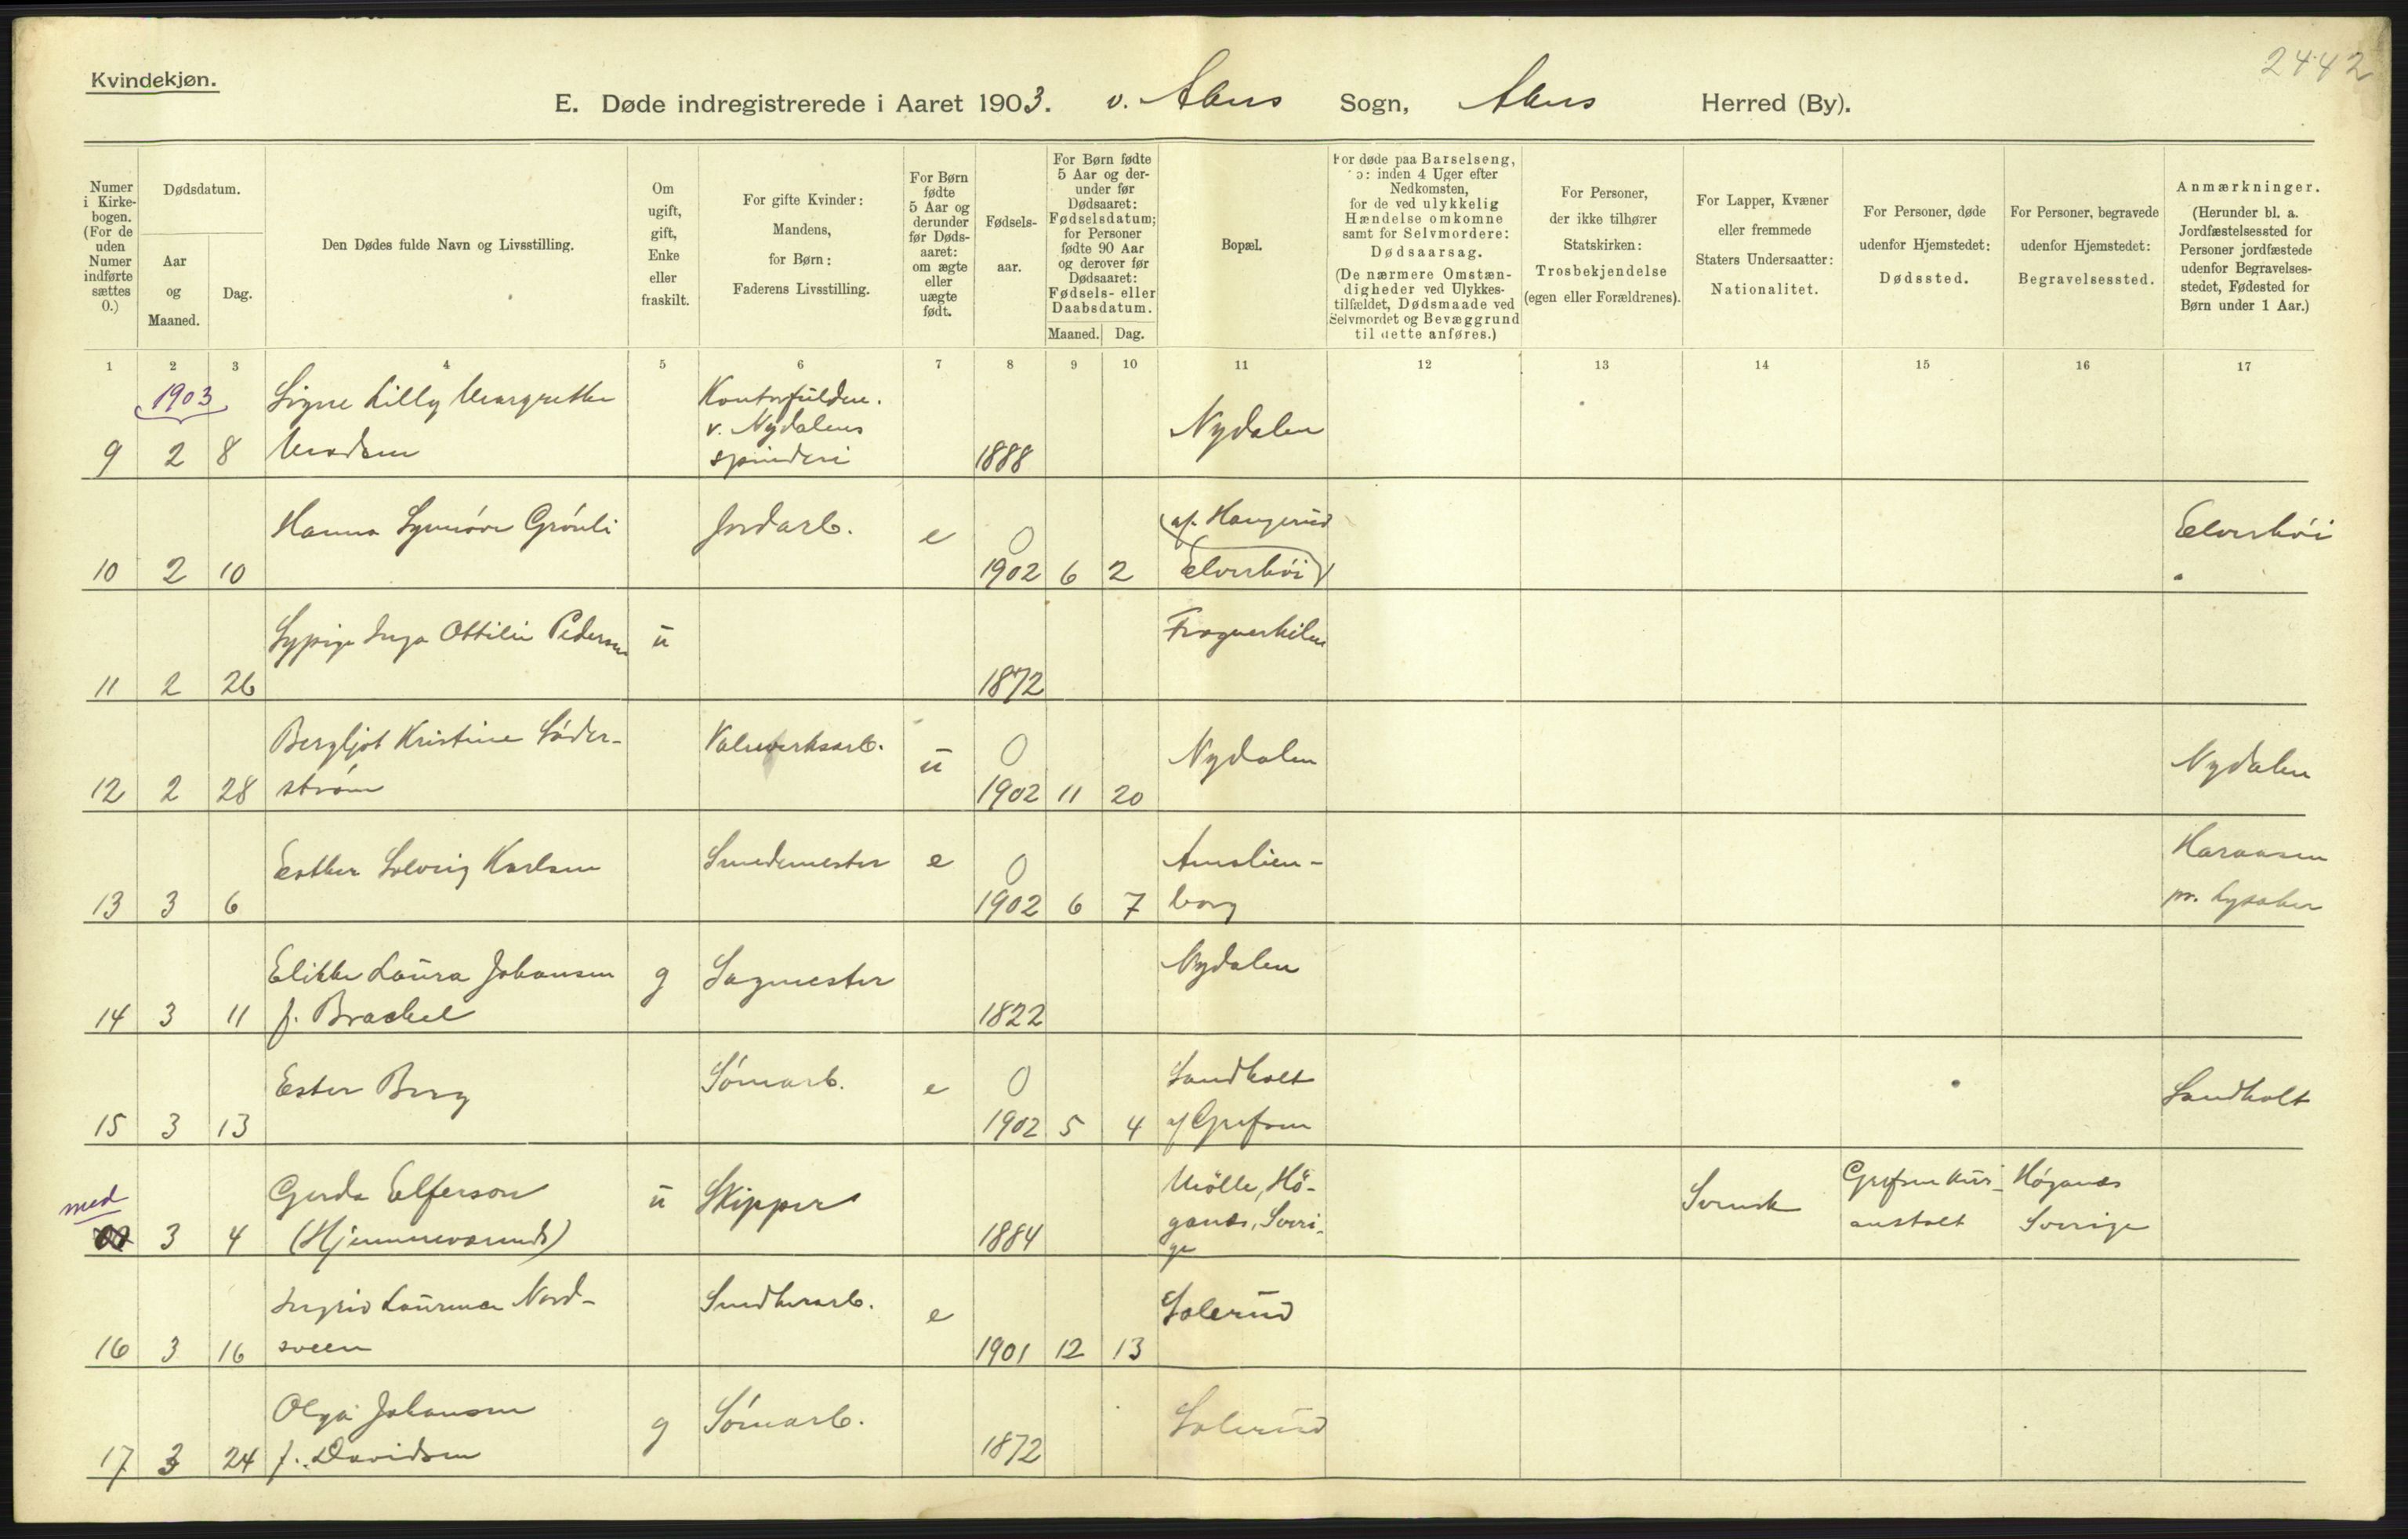 2442
Kvindekjøn.
E. Døde indregistrerede i Aaret 1903. v. Akers Sogn, Akers Herred (By).
Numer i Kirkebogen. (For de uden Numer indførte sættes 0.)
Dødsdatum.
Aar og Maaned.
Dag.
Den Dødes fulde Navn og Livsstilling.
Om ugift, gift, Enke eller fraskilt.
For gifte Kvinder: Mandens, for Børn: Faderens Livsstilling.
For Børn fødte 5 Aar og derunder før Dødsaaret: om ægte eller uægte født.
Fødselsaar.
For Børn fødte 5 Aar og derunder før Dødsaaret: Fødselsdatum; for Personer fødte 90 Aar og derover før Dødsaaret: Fødsels- eller Daabsdatum.
Maaned. Dag.
Bopæl.
For døde paa Barselseng, ɔ: inden 4 Uger efter Nedkomsten, for de ved ulykkelig Hændelse omkomne samt for Selvmordere: Dødsaarsag. (De nærmere Omstændigheder ved Ulykkestilfældet, Dødsmaade ved Selvmordet og Bevæggrund til dette anføres.)
For Personer, der ikke tilhører Statskirken: Trosbekjendelse (egen eller Forældrenes).
For Lapper, Kvæner eller fremmede Staters Undersaatter: Nationalitet.
For Personer, døde udenfor Hjemstedet: Dødssted.
For Personer, begravede udenfor Hjemstedet: Begravelsessted.
Anmærkninger. (Herunder bl. a. Jordfæstelsessted for Personer jordfæstede udenfor Begravelsesstedet, Fødested for Børn under 1 Aar.)
1 2 3 4 5 6 7 8 9 10 11 12 13 14 15 16 17
1903
Signe Lilly Margrethe Kontorfuldm.
v. Nydalens Nydalen
9 2 8 Madsen spinderi 1888
Hanna Synnøve Grønli Jordarb. e 0 af. Haugerud Elverhøi
10 2 10 1902 6 2 Elverhøi
Sypige Inga Ottilie Pedersen u Frognerkilen
11 2 26 1872
Bergljot Kristine Söder- Valseverksarb. u 0 Nydalen Nydalen
12 2 28 ström 1902 11 20
Esther Solveig Karlsen Smedemester e 0 Amalien- Haraasen
13 3 6 1902 6 7 borg pr. Lysaker
Elikke Laura Johansen g Sagmester Nydalen
14 3 11 f. Brackel 1822
Ester Berg Tómarb. e 0 Sandholt Sandholt
15 3 13 1902 5 4 af Grefsen
med Gerda Elferson u Skipper Mölle, Hö- Svensk Grefsen Kur- Höganäs
00 3 4 (Hjemmeværende) 1884 ganäs, Sveri- anstalt Sverige
ge
Ingrid Laurence Nord- Snedkerarb. e Solerud
16 3 16 sveen 1901 12 13
Olga Johansen g Tómarb. Solerud
17 3 24 f. Davidsen 1872